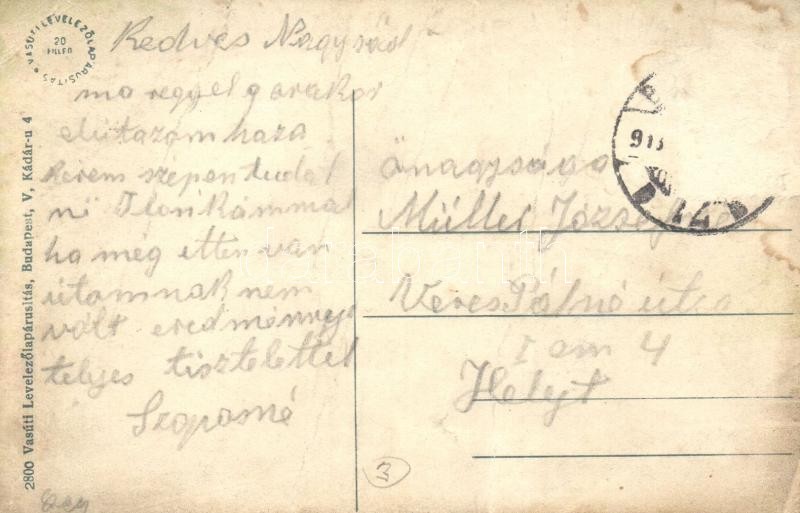 VASÚTI LEVELEZŐLAPÁRUSITÁS
20
FILLÉR
2800 Vasúti Levelezőlapárusitás, Budapest, V, Kádár-u 4
Kedves Nagysád
ma regyel 9 orakor
elutazom haza
kerem szépen tudat
ni Ilonkámmal
ha még itten van
útamnak nem
vólt eredménnye
teljes tisztelettel
Szoposné
Önagysága
Müller Józsefné
Veres Pálné útca
I em 4
Helyt
913
14
3